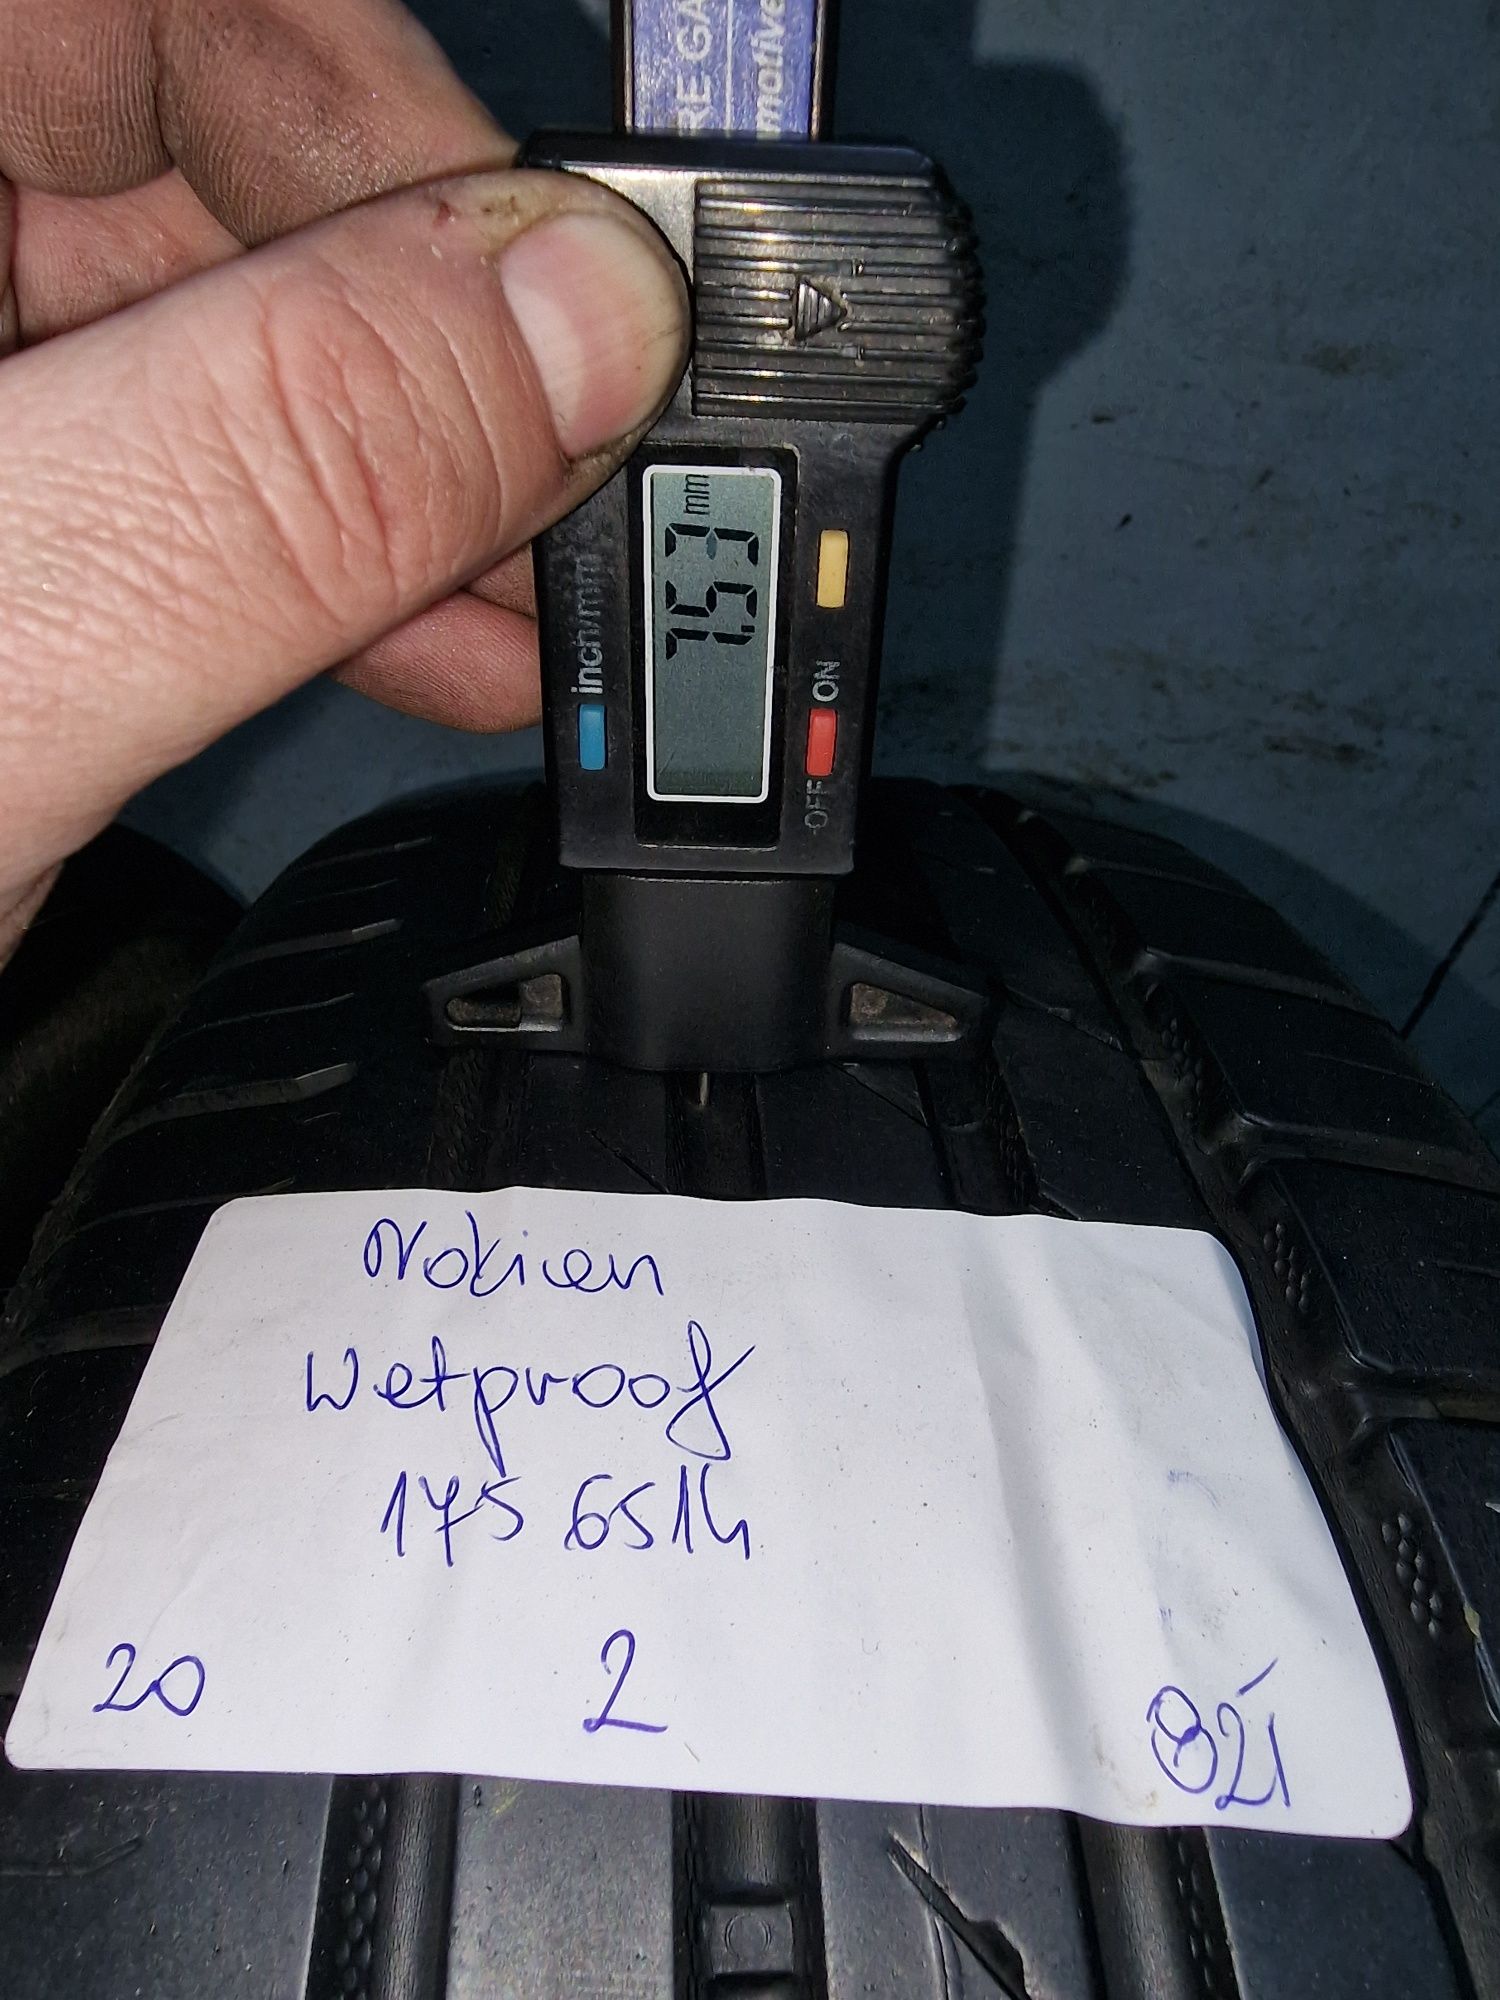 RE GA
motive
7.53 mm
inch/mm
OFF ON
Nokian
Wetproof
175 65 14
20 2 821